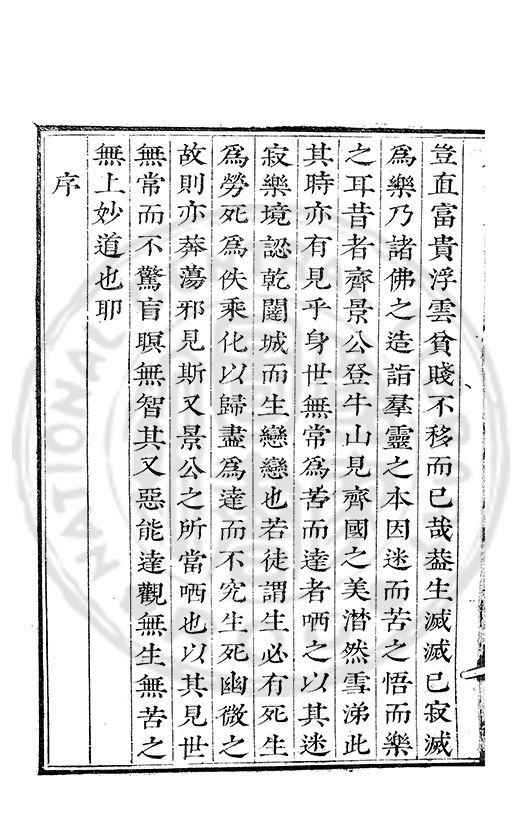 豈直富貴浮雲貧賤不移而已哉葢生滅滅已寂滅
爲樂乃諸佛之造詣羣靈之本因迷而苦之悟而樂
之耳昔者齊景公登牛山見齊國之美潸然雪涕此
其時亦有見乎身世無常爲苦而達者哂之以其迷
寂樂境認乾闥城而生戀戀也若徒謂生必有死生
爲勞死爲佚乘化以歸盡爲達而不究生死幽微之
故則亦莽蕩邪見斯又景公之所當哂也以其見世
無常而不驚盲瞑無智其又惡能達觀無生無苦之
無上妙道也耶
序